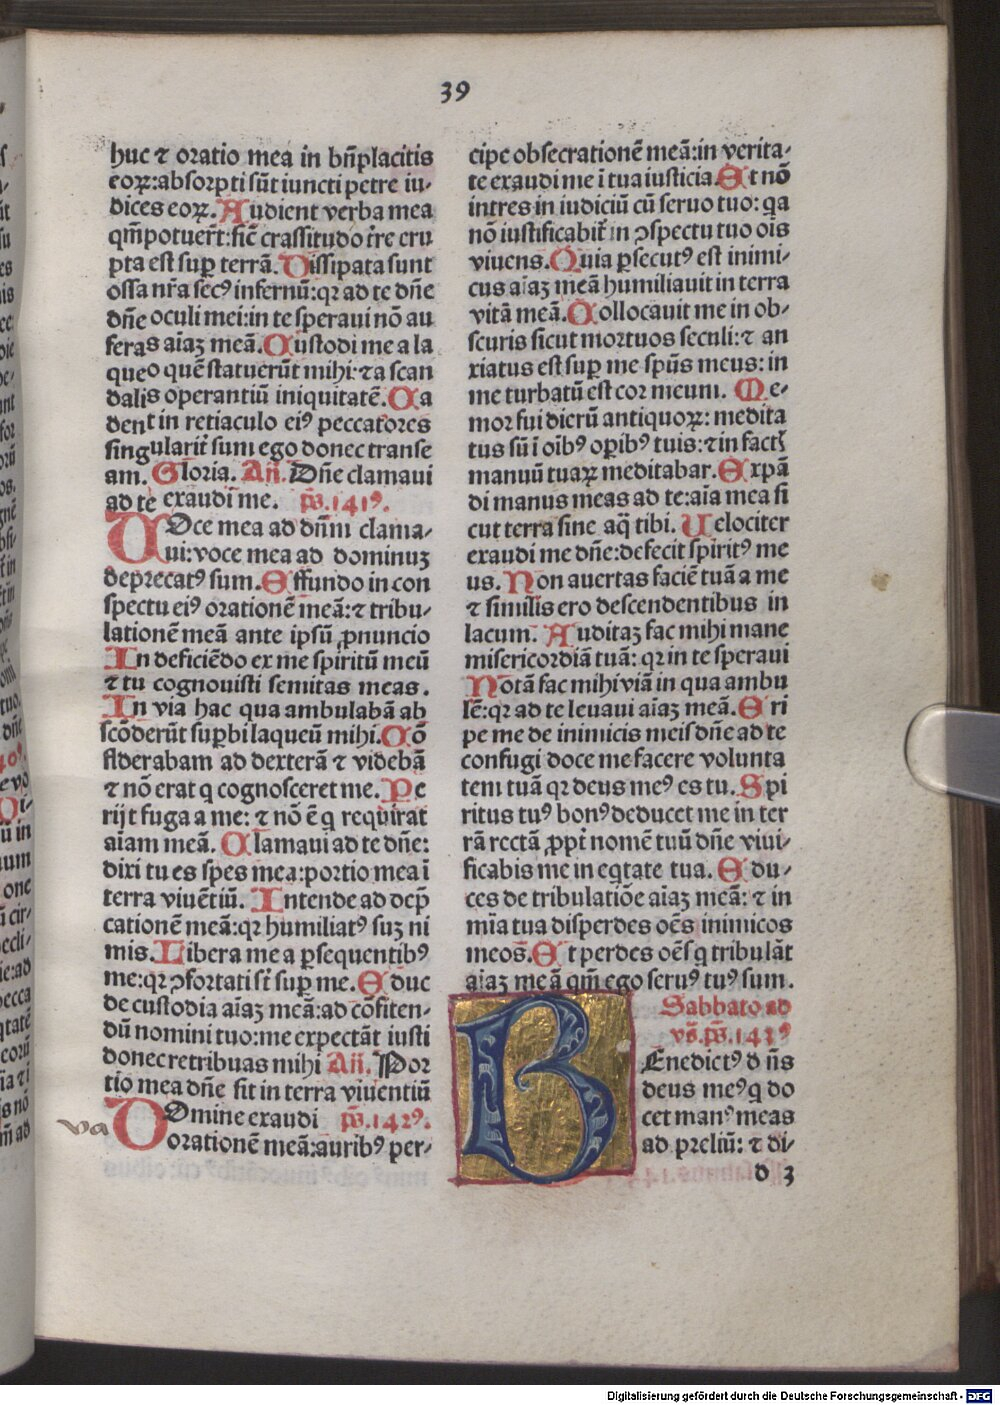 39
huc ⁊ oratio mea in bn̄placitis
eoꝝ:absorpti sūt iuncti petre iu-
dices eoꝝ. Audient verba mea
qm̄ potuer̄t:sic̄ crassitudo t̄re eru
pta est suꝑ terrā. Dissipata sunt
ossa nr̄a secꝰ infernū:qꝛ ad te dn̄e
dn̄e oculi mei:in te speraui nō au
feras aiaꝫ meā. Custodi me a la
queo quē statuerūt mihi:⁊ a scan
dalis operantiū iniquitatē. Ca
dent in retiaculo eiꝰ peccatores
singularit̄ sum ego donec transe
am. Gloria. Añ. Dn̄e clamaui
ad te exaudi me. p̄s.141ꝰ.
VOce mea ad dn̄m clama-
ui:voce mea ad dominuꝫ
deprecatꝰ sum. Effundo in con
spectu eiꝰ orationē meā:⁊ tribu-
lationē meā ante ipsū ꝓnuncio
In deficiēdo ex me spiritū meū
⁊ tu cognouisti semitas meas.
In via hac qua ambulabā ab
scōderūt suꝑbi laqueū mihi. Cō
siderabam ad dexterā ⁊ videbā
⁊ nō erat q cognosceret me. Pe
rijt fuga a me: ⁊ nō ē q requirat
aīam meā. Clamaui ad te dn̄e:
dixi tu es spes mea:portio mea ī
terra viuētiū. Intende ad dep̄
cationē meā:qꝛ humiliatꝰ suꝫ ni
mis. Libera me a ꝑsequentibꝰ
me:qꝛ ↄfortati st̄ suꝑ me. Educ
de custodia aiaꝫ meā:ad cōfiten-
dū nomini tuo:me expectāt iusti
donec retribuas mihi Añ. Por
tio mea dn̄e sit in terra viuentiū
DOmine exaudi p̄s.142ꝰ.
va
orationē meā:auribꝰ per-
cipe obsecrationē meā:in verita-
te exaudi me ī tua iusticia. Et nō
intres in iudiciū cū seruo tuo: qa
nō iustificabit̄ in ↄspectu tuo ois
viuens. Quia ꝑsecutꝰ est inimi-
cus aiaꝫ meā humiliauit in terra
vitā meā. Collocauit me in ob-
scuris sicut mortuos seculi:⁊ an
xiatus est suꝑ me spūs meus: in
me turbatū est cor meum. Me-
mor fui dierū antiquoꝝ: medita
tus sū ī oībꝰ oꝑibꝰ tuis:⁊ in factꝭ
manuū tuaꝝ meditabar. Expā
di manus meas ad te:aīa mea si
cut terra sine aq̄ tibi. Uelociter
exaudi me dn̄e:defecit spiritꝰ me
us. Non auertas faciē tuā a me
⁊ similis ero descendentibus in
lacum. Auditaꝫ fac mihi mane
misericordiā tuā: qꝛ in te speraui
Notā fac mihi viā in qua ambu
lē:qꝛ ad te leuaui aīaꝫ meā. Eri
pe me de inimicis meis dn̄e ad te
confugi doce me facere volunta
tem tuā qꝛ deus meꝰ es tu. Spi
ritus tuꝰ bonꝰ deducet me in ter
rā rectā ꝓpt̄ nomē tuū dn̄e viui-
ficabis me in eqtate tua. Edu-
ces de tribulatiōe aīaꝫ meā: ⁊ in
mīa tua disperdes oēs inimicos
meos. Et perdes oēs q tribulāt
aīaꝫ meā qm̄ ego seruꝰ tuꝰ sum.
Sabbato ad
vs̄.p̄s.143ꝰ
BEnedictꝰ dn̄s
deus meꝰ q do
cet manꝰ meas
ad preliū: ⁊ di-
d 3
Digitalisierung gefördert durch die Deutsche Forschungsgemeinschaft - DFG